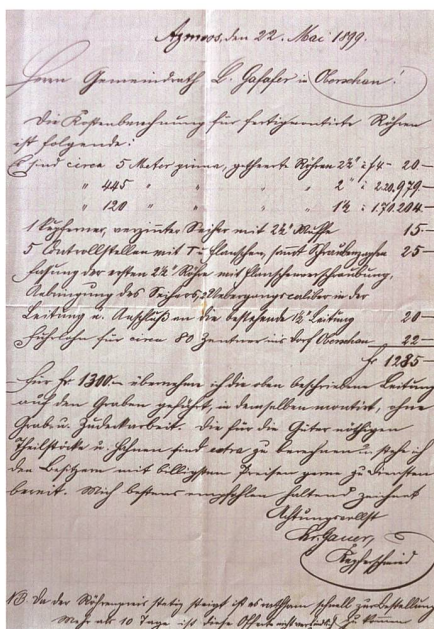 Azmoos, den 22. Mai 1899.
Herrn Gemeindrath L. Gafafer in Oberschan!
Die Kostenberechnung für fertigmontirte Röhren
ist folgende:
Es sind circa 5 Meter getheerte Röhren 2½" à f 4– 20.–
" 445 " " " " 2" à 2.20. 979–
" 120 " " " " 1½ à 1.70. 204–
1 Kupferner, verzinnter Seiher mit 2½" Muffe 15–
5 Controllstellen mit T– Flanschen, sammt Schraubenzapfen 25–
Fassung der ersten 2½" Röhre mit Flanschenverschraubung,
des Seihers, Uebergangscaliber in der
Leitung u. Anschluß an die bestehende 1½" Leitung 20–
Fuhrlohn für circa 80 Zentner ins Dorf Oberschan 22–
fr 1285
Für fr 1300.– übernehme ich die oben beschriebene Leitung
auf den Graben geführt, in demselben montirt, ohne
Grab u. Zudeckarbeit. die für die Güter nöthigen
Theilstöcke u. Hahnen sind extra zu berechnen u. stehe ich
den Besitzern mit billigsten Preisen gerne zu Diensten
bereit. Mich bestens empfohlen haltend zeichnet
Achtungsvollst
Chr. Gauer,
Kupferschmied
NB. Da der Röhrenpreis stetig steigt ist es rathsam schnell zur Bestellung
zu kommen
Mehr als 10 Tage ist diese Offerte nicht verbindlich